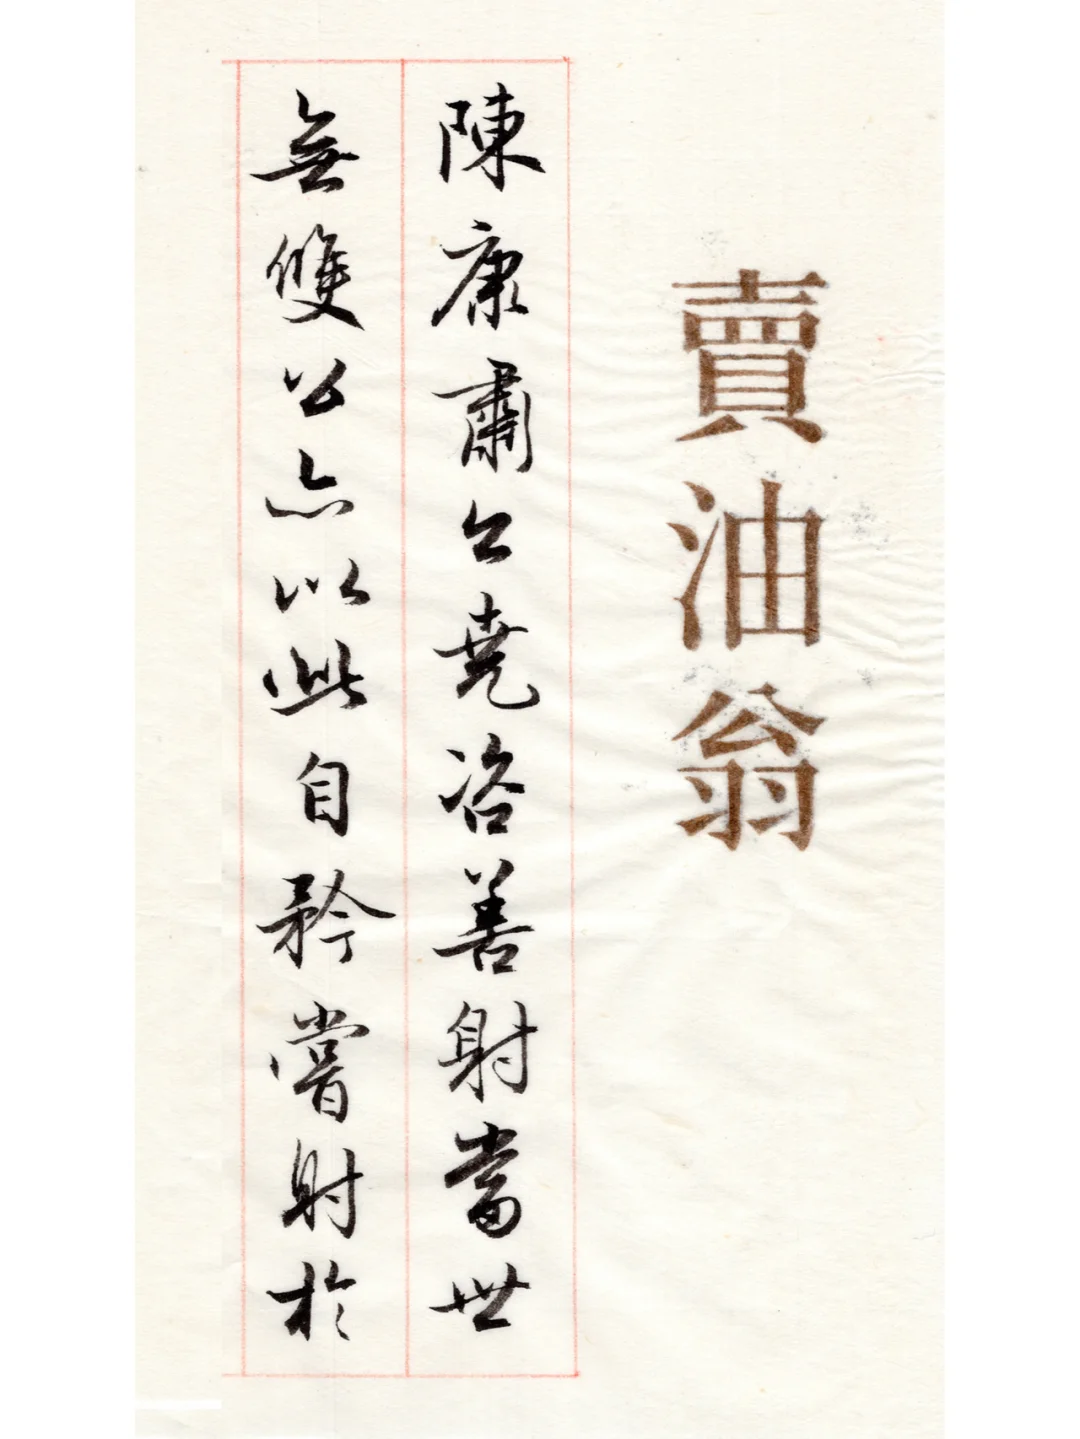 賣油翁
陳康肅公堯咨善射當世
無雙公亦以此自矜嘗射於